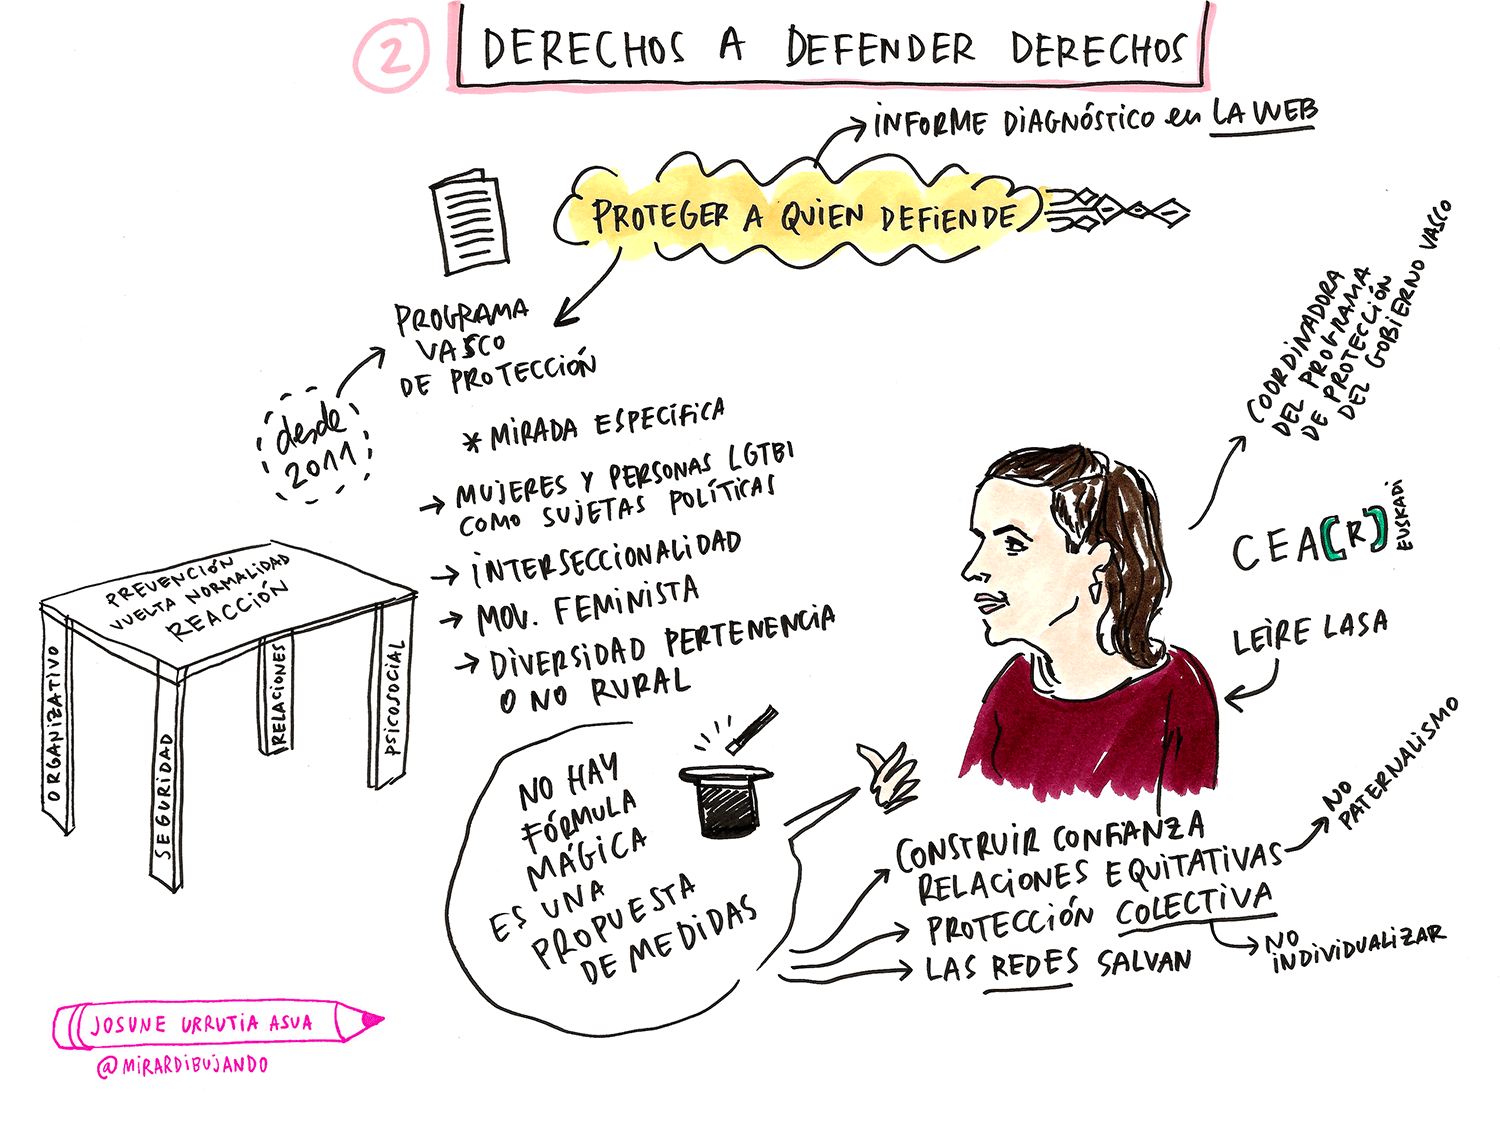 2
DERECHOS A DEFENDER DERECHOS
INFORME DIAGNÓSTICO en LA WEB
PROTEGER A QUIEN DEFIENDE
PROGRAMA
VASCO
DE PROTECCIÓN
desde
2011
* MIRADA ESPECÍFICA
→ MUJERES Y PERSONAS LGTBI
COMO SUJETAS POLÍTICAS
→ INTERSECCIONALIDAD
→ MOV. FEMINISTA
→ DIVERSIDAD PERTENENCIA
O NO RURAL
PREVENCIÓN
VUELTA NORMALIDAD
REACCIÓN
ORGANIZATIVO
SEGURIDAD
RELACIONES
PSICOSOCIAL
COORDINADORA
DEL PROGRAMA
DE PROTECCIÓN
DEL GOBIERNO VASCO
CEA(R)
EUSKADI
LEIRE LASA
NO HAY
FÓRMULA
MÁGICA
ES UNA
PROPUESTA
DE MEDIDAS
CONSTRUIR CONFIANZA
RELACIONES EQUITATIVAS
NO
PATERNALISMO
PROTECCIÓN COLECTIVA
NO
INDIVIDUALIZAR
LAS REDES SALVAN
JOSUNE URRUTIA ASUA
@MIRARDIBUJANDO